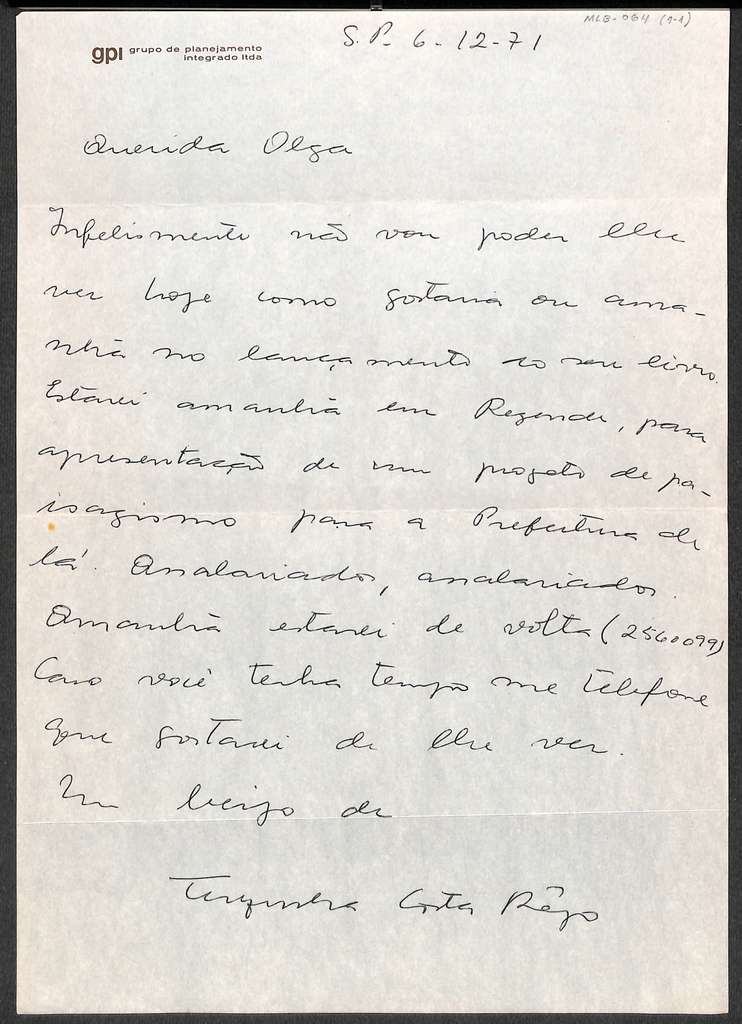 MLB-064 (1-1)
S.P. 6-12-71
gpi grupo de planejamento
integrado ltda
Querida Olga
Infelismente não vou poder lhe
ver hoje como gostaria ou ama-
nhã no lançamento do seu livro.
Estarei amanhã em Rezende, para
apresentação de um projeto de pa-
isagismo para a Prefeitura de
lá. Assalariados, assalariados.
Amanhã estarei de volta (2560099)
Caso você tenha tempo me telefone
que gostarei de lhe ver.
Um beijo de
Terezinha Costa Rêgo